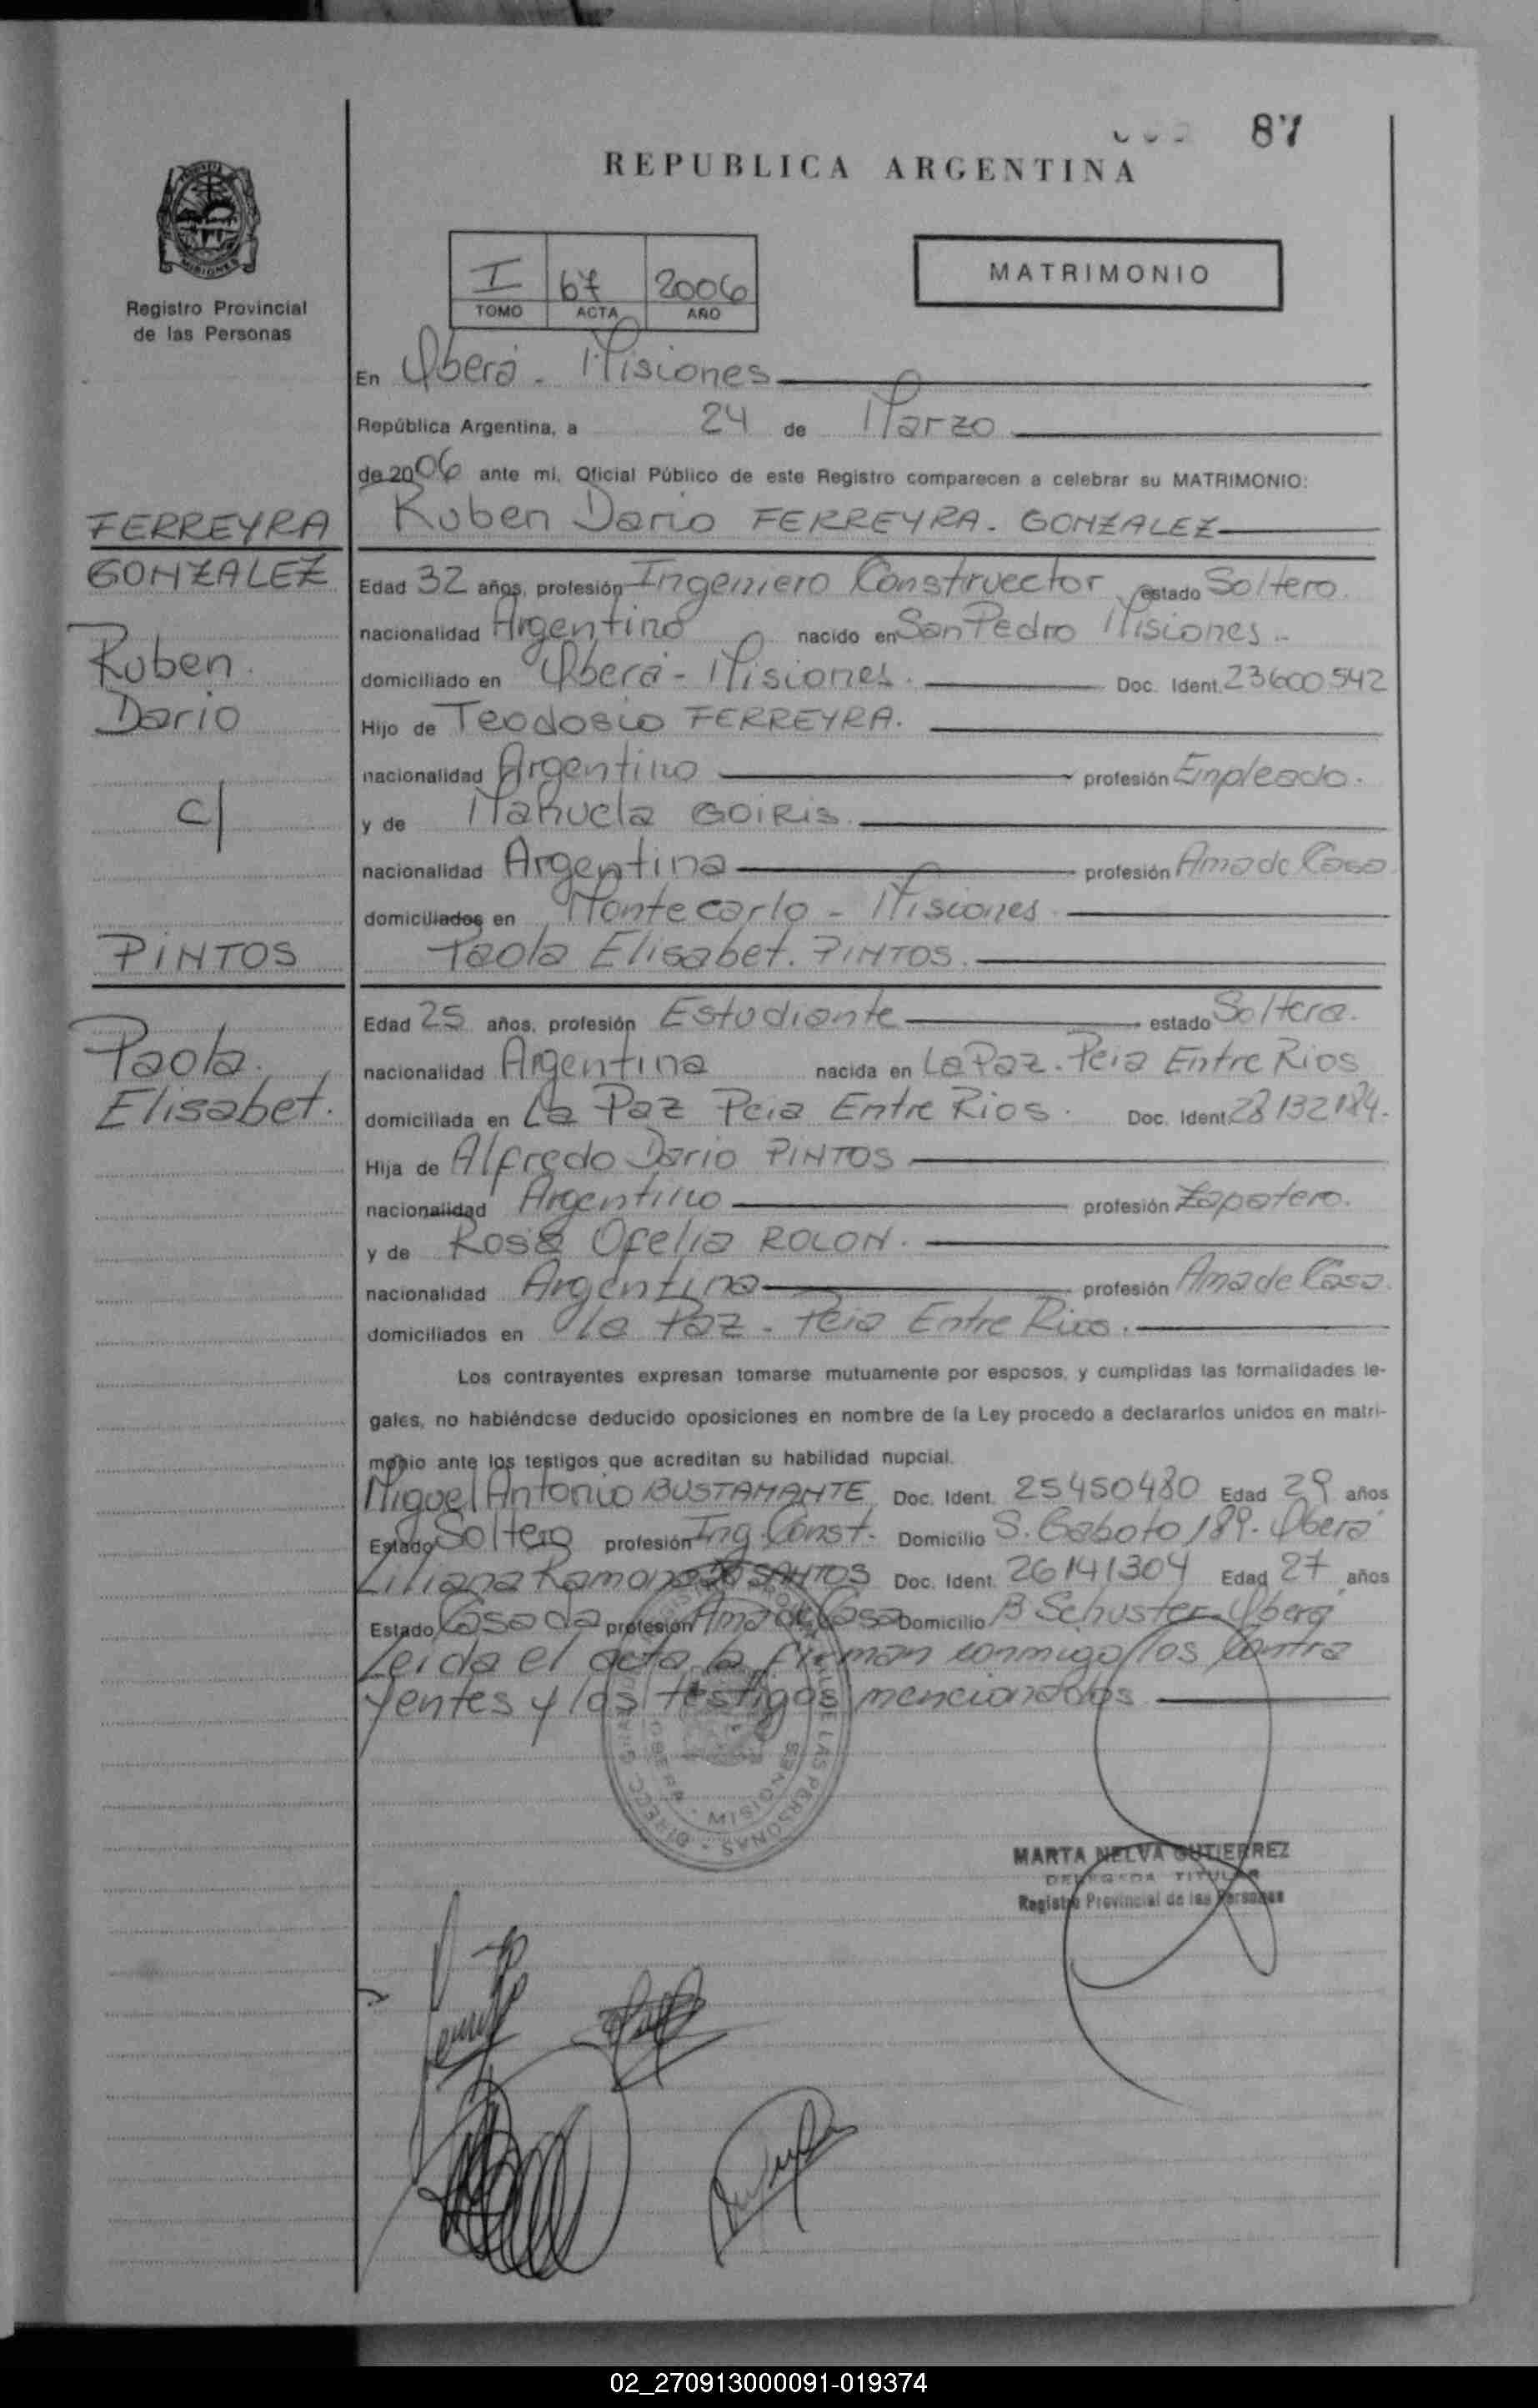 87
REPUBLICA ARGENTINA
MISIONES
Registro Provincial
de las Personas
I 67 2006
TOMO ACTA AÑO
MATRIMONIO
En Oberá - Misiones
República Argentina, a 24 de Marzo
de 2006 ante mi, Oficial Público de este Registro comparecen a celebrar su MATRIMONIO:
FERREYRA
GONZALEZ
Ruben
Dario
c/
PINTOS
Paola
Elisabet.
Ruben Dario FERREYRA - GONZALEZ
Edad 32 años, profesión Ingeniero Construector estado Soltero.
nacionalidad Argentino nacido en San Pedro Misiones -
domiciliado en Oberá - Misiones. Doc. Ident. 23600542
Hijo de Teodosio FERREYRA.
nacionalidad Argentino profesión Empleado.
y de Manuela GOIRIS.
nacionalidad Argentina profesión Ama de Casa
domiciliados en Montecarlo - Misiones
Paola Elisabet. PINTOS.
Edad 25 años, profesión Estudiante estado Soltera.
nacionalidad Argentina nacida en La Paz - Pcia Entre Rios
domiciliada en La Paz Pcia Entre Rios. Doc. Ident. 28132184.
Hija de Alfredo Dario PINTOS
nacionalidad Argentino profesión Zapatero.
y de Rosa Ofelia ROLON.
nacionalidad Argentina profesión Ama de Casa.
domiciliados en La Paz - Pcia Entre Rios.
Los contrayentes expresan tomarse mutuamente por esposos, y cumplidas las formalidades le-
gales, no habiéndose deducido oposiciones en nombre de la Ley procedo a declararlos unidos en matri-
monio ante los testigos que acreditan su habilidad nupcial.
Miguel Antonio BUSTAMANTE Doc. Ident. 25450480 Edad 29 años
Estado Soltero profesión Ing. Const. Domicilio S. Gaboto 189 - Oberá
Liliana Ramona SANTOS Doc. Ident. 26141304 Edad 27 años
Estado Casada profesión Ama de Casa Domicilio B Schuster - Oberá
Leida el acta la firman conmigo los contra
yentes y los testigos mencionados
OBERA - MISIONES
MARTA NELVA GUTIERREZ
DELEGADA TITULAR
Registro Provincial de las Personas
02_270913000091-019374